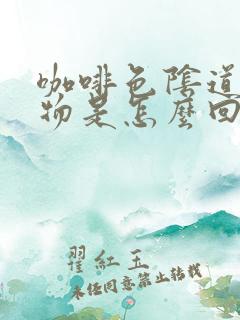 咖啡色陰道
物是怎麼回
翟紅玉
未经同意禁止转载